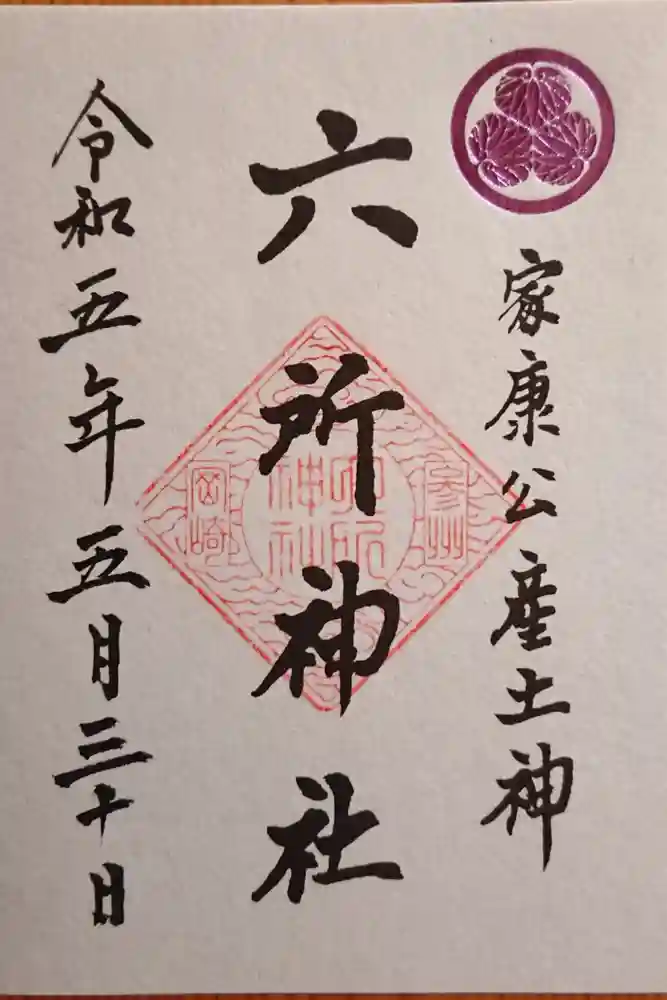 家康公産土神
六所神社
令和五年五月三十日
參州
六所
神社
岡崎